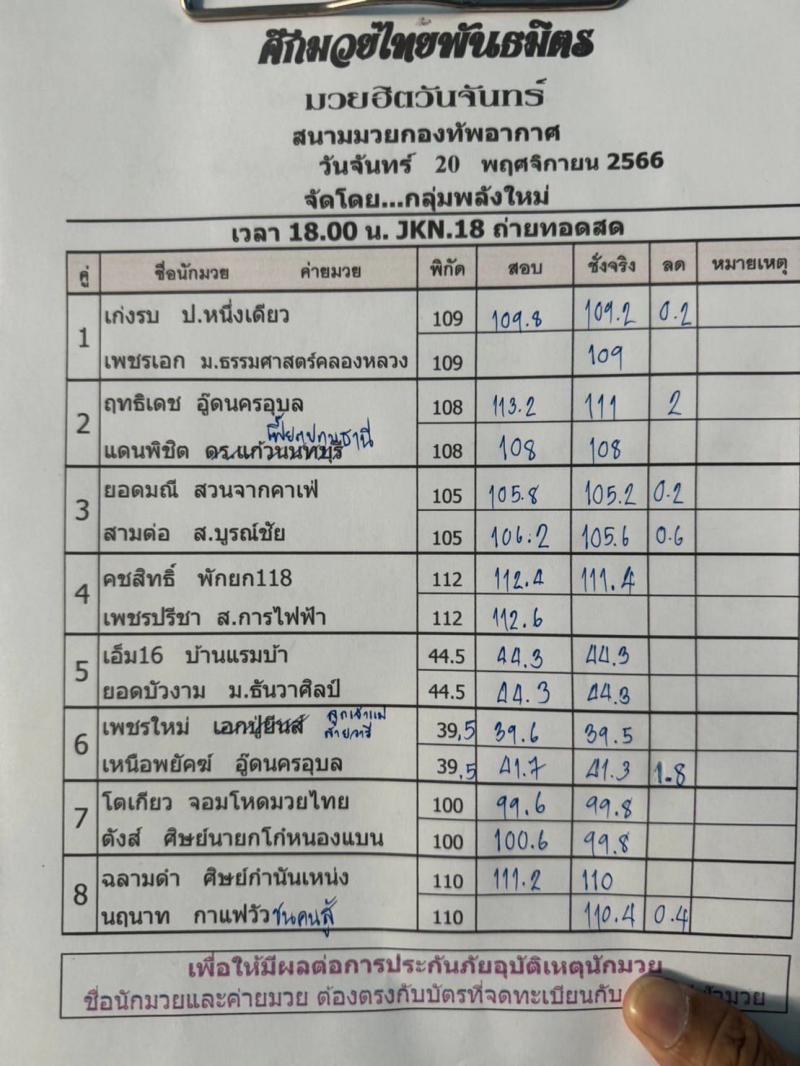 ศึกมวยไทยพันธมิตร
มวยฮิตวันจันทร์
สนามมวยกองทัพอากาศ
วันจันทร์ 20 พฤศจิกายน 2566
จัดโดย...กลุ่มพลังใหม่
เวลา 18.00 น. JKN.18 ถ่ายทอดสด
คู่ ชื่อนักมวย ค่ายมวย พิกัด สอบ ชั่งจริง ลด หมายเหตุ
1 เก่งรบ ป.หนึ่งเดียว 109 109.8 109.2 0.2
เพชรเอก ม.ธรรมศาสตร์คลองหลวง 109 109
2 ฤทธิเดช อู๊ดนครอุบล 108 113.2 111 2
แดนพิชิต ดร.แก้วนนทบุรี 108 108 108
3 ยอดมณี สวนจากคาเฟ่ 105 105.8 105.2 0.2
สามต่อ ส.บูรณ์ชัย 105 106.2 105.6 0.6
4 คชสิทธิ์ พักยก118 112 112.4 111.4
เพชรปรีชา ส.การไฟฟ้า 112 112.6
5 เอ็ม16 บ้านแรมบ้า 44.5 44.3 44.3
ยอดบัวงาม ม.ธันวาศิลป์ 44.5 44.3 44.3
6 เพชรใหม่ เอกปู่ยีนส์ ลูกเจ้าแม่ 39.5 39.6 39.5
เหนือพยัคฆ์ อู๊ดนครอุบล 39.5 41.7 41.3 1.8
7 โตเกียว จอมโหดมวยไทย 100 99.6 99.8
ตังส์ ศิษย์นายกโก๋หนองแบน 100 100.6 99.8
8 ฉลามดำ ศิษย์กำนันเหน่ง 110 111.2 110
นฤนาท กาแฟวัวชนคนสู้ 110 110.4 0.4
เพื่อให้มีผลต่อการประกันภัยอุบัติเหตุนักมวย
ชื่อนักมวยและค่ายมวย ต้องตรงกับบัตรที่จดทะเบียนกับ